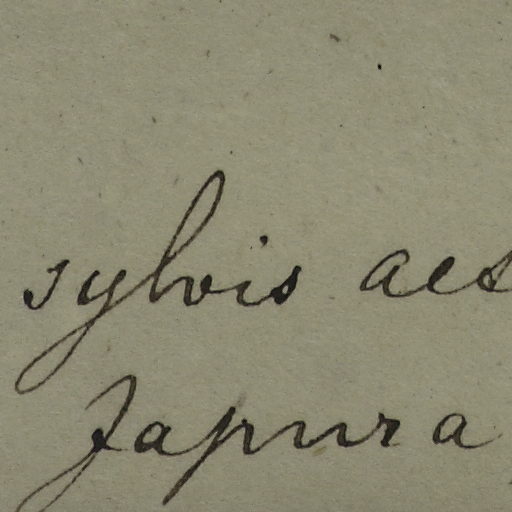 sylvis aes
Japura